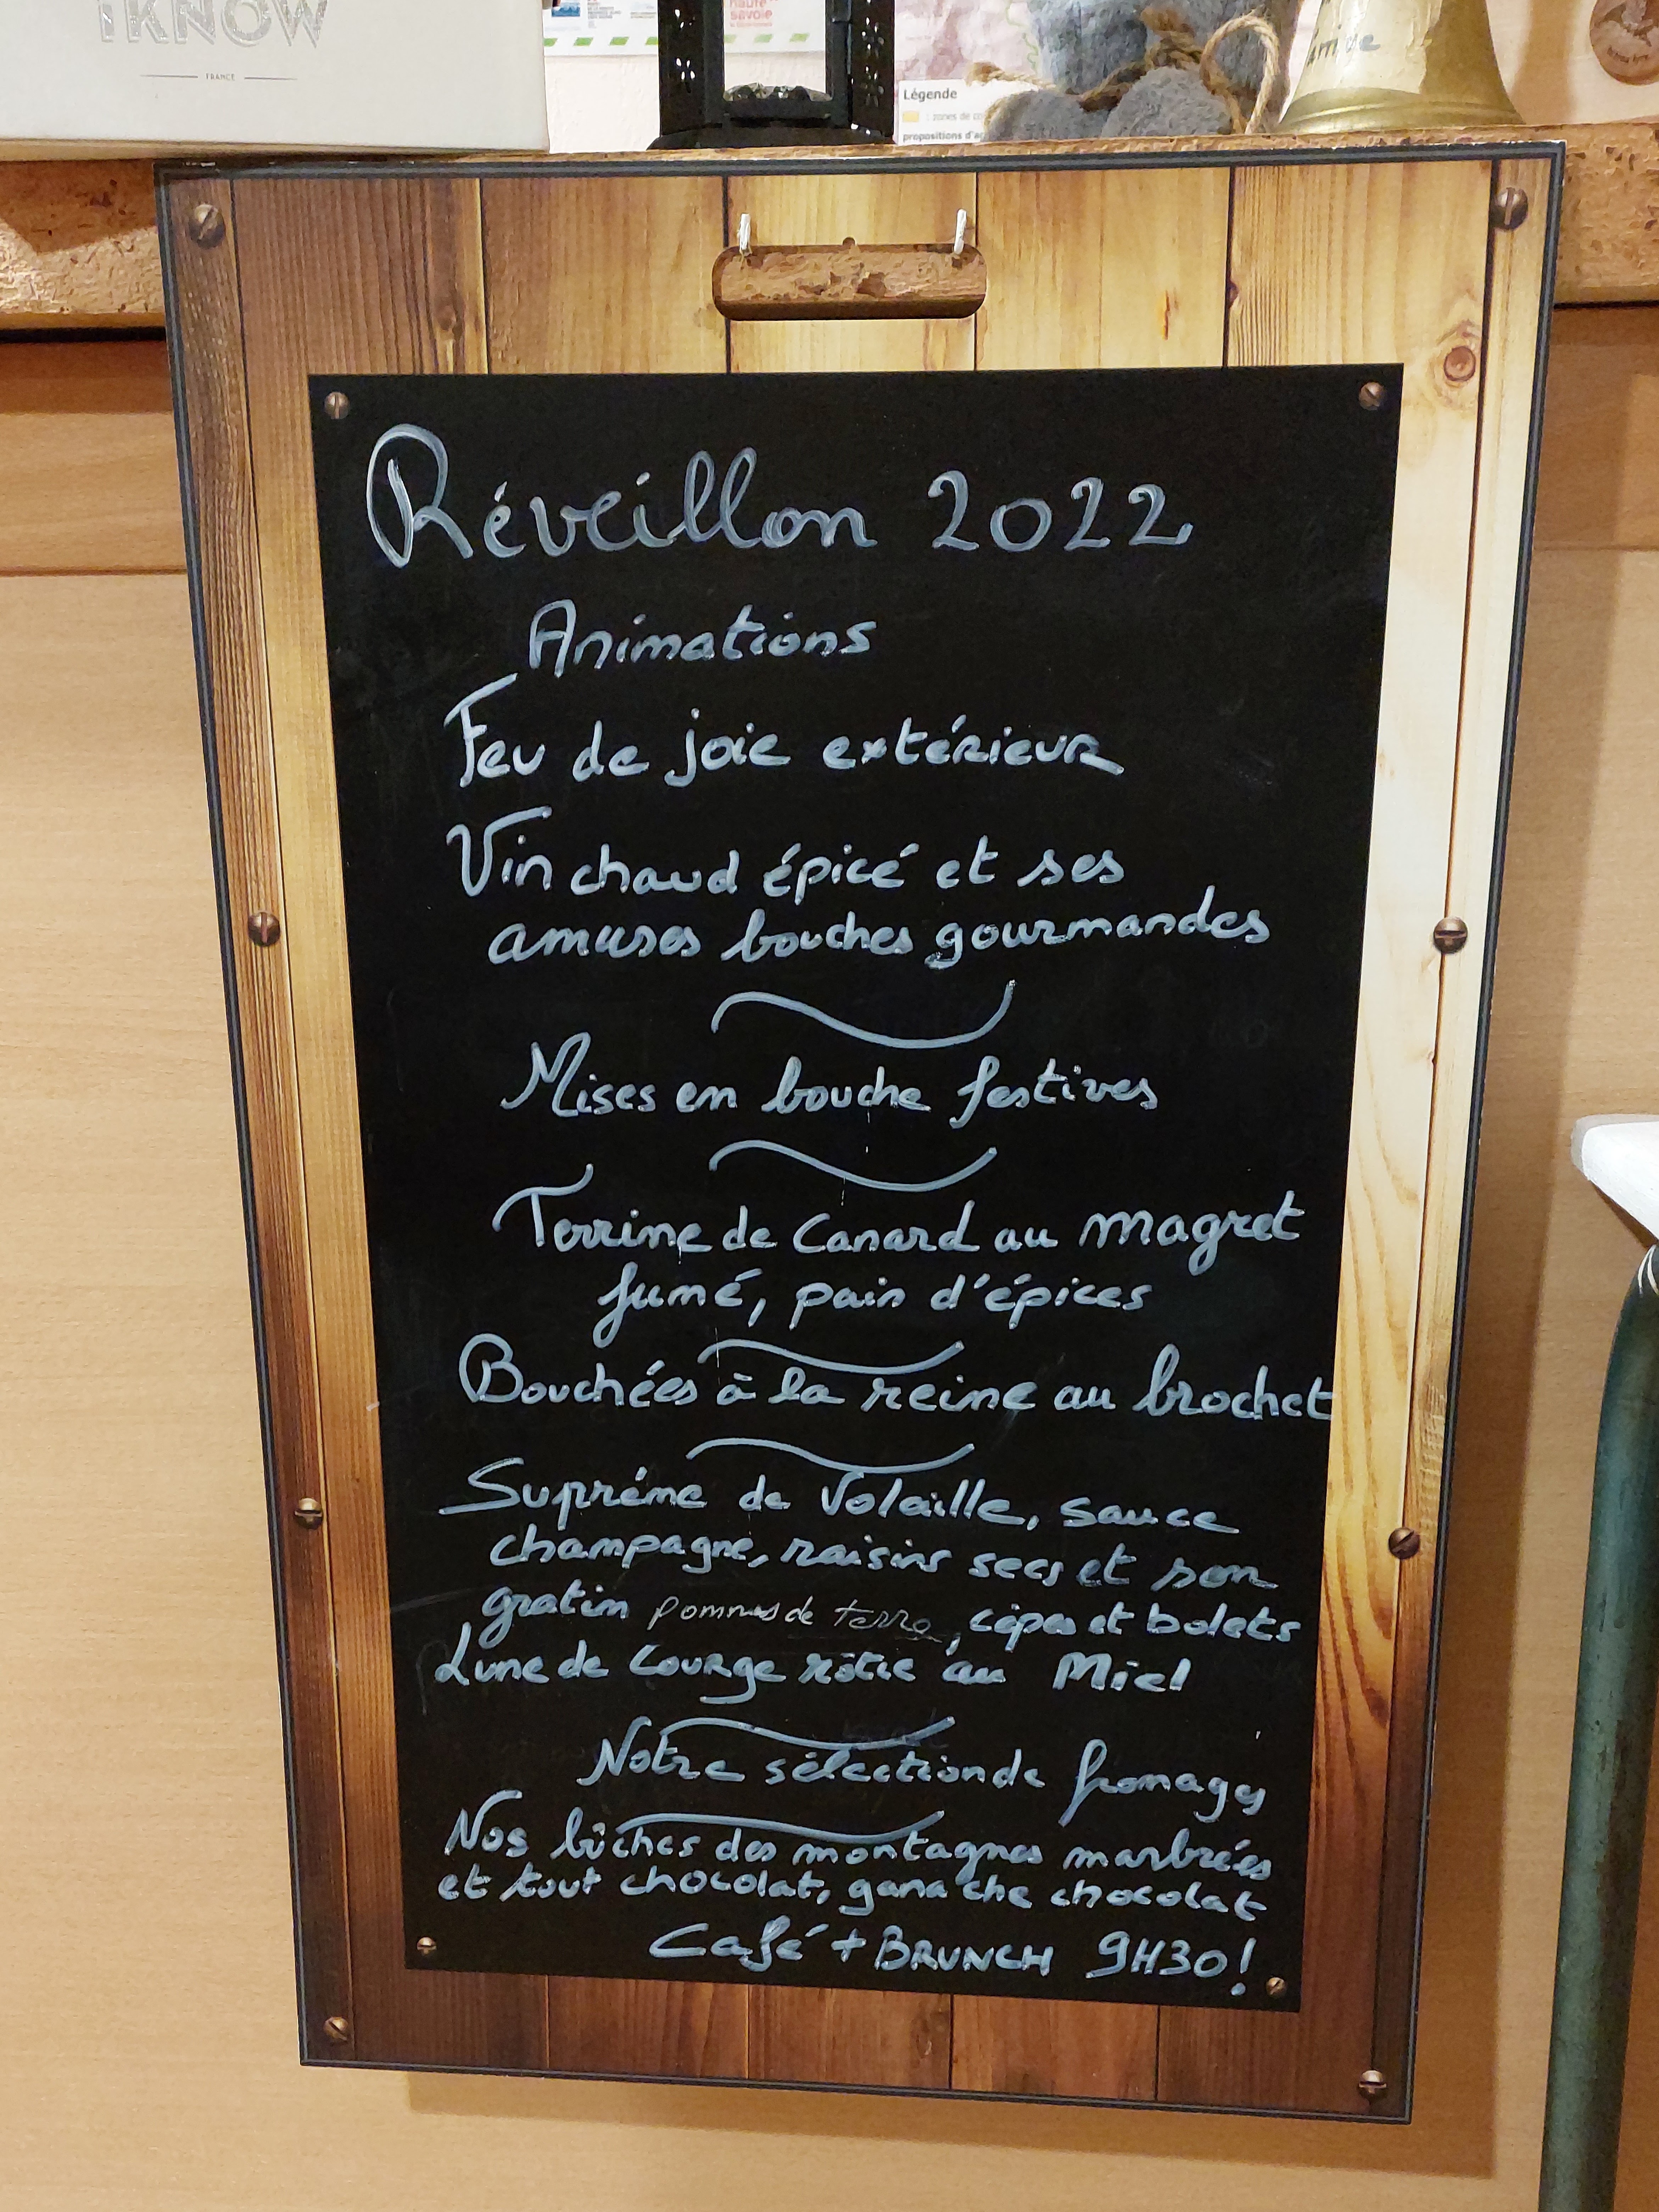 iKNOW
FRANCE
haute
savoie
Légende
: zones de
propositions
Réveillon 2022
Animations
Feu de joie extérieur
Vin chaud épicé et ses
amuses bouches gourmandes
Mises en bouche festives
Terrine de Canard au magret
fumé, pain d'épices
Bouchées à la reine au brochet
Suprême de Volaille, sauce
champagne, raisins secs et son
gratin pommes de terre, cèpes et bolets
Lune de Courge rôtie au Miel
Notre sélection de fromages
Nos bûches des montagnes marbrées
et tout chocolat, ganache chocolat
Café + BRUNCH 9H30!